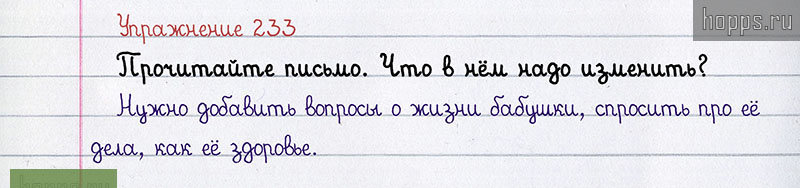 hopps.ru
Упражнение 233
Прочитайте письмо. Что в нём надо изменить?
Нужно добавить вопросы о жизни бабушки, спросить про её
дела, как её здоровье.